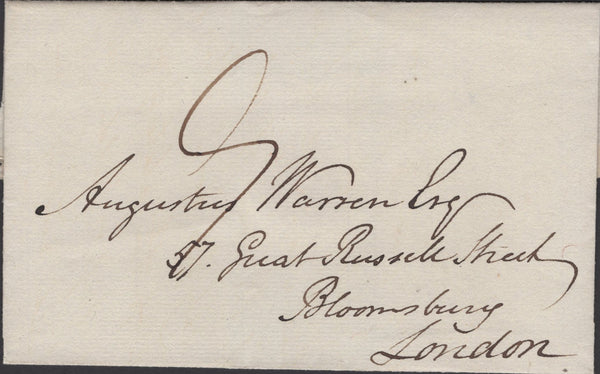 Augustus Warren Esq
37. Great Russell Street
Bloomsbury
London